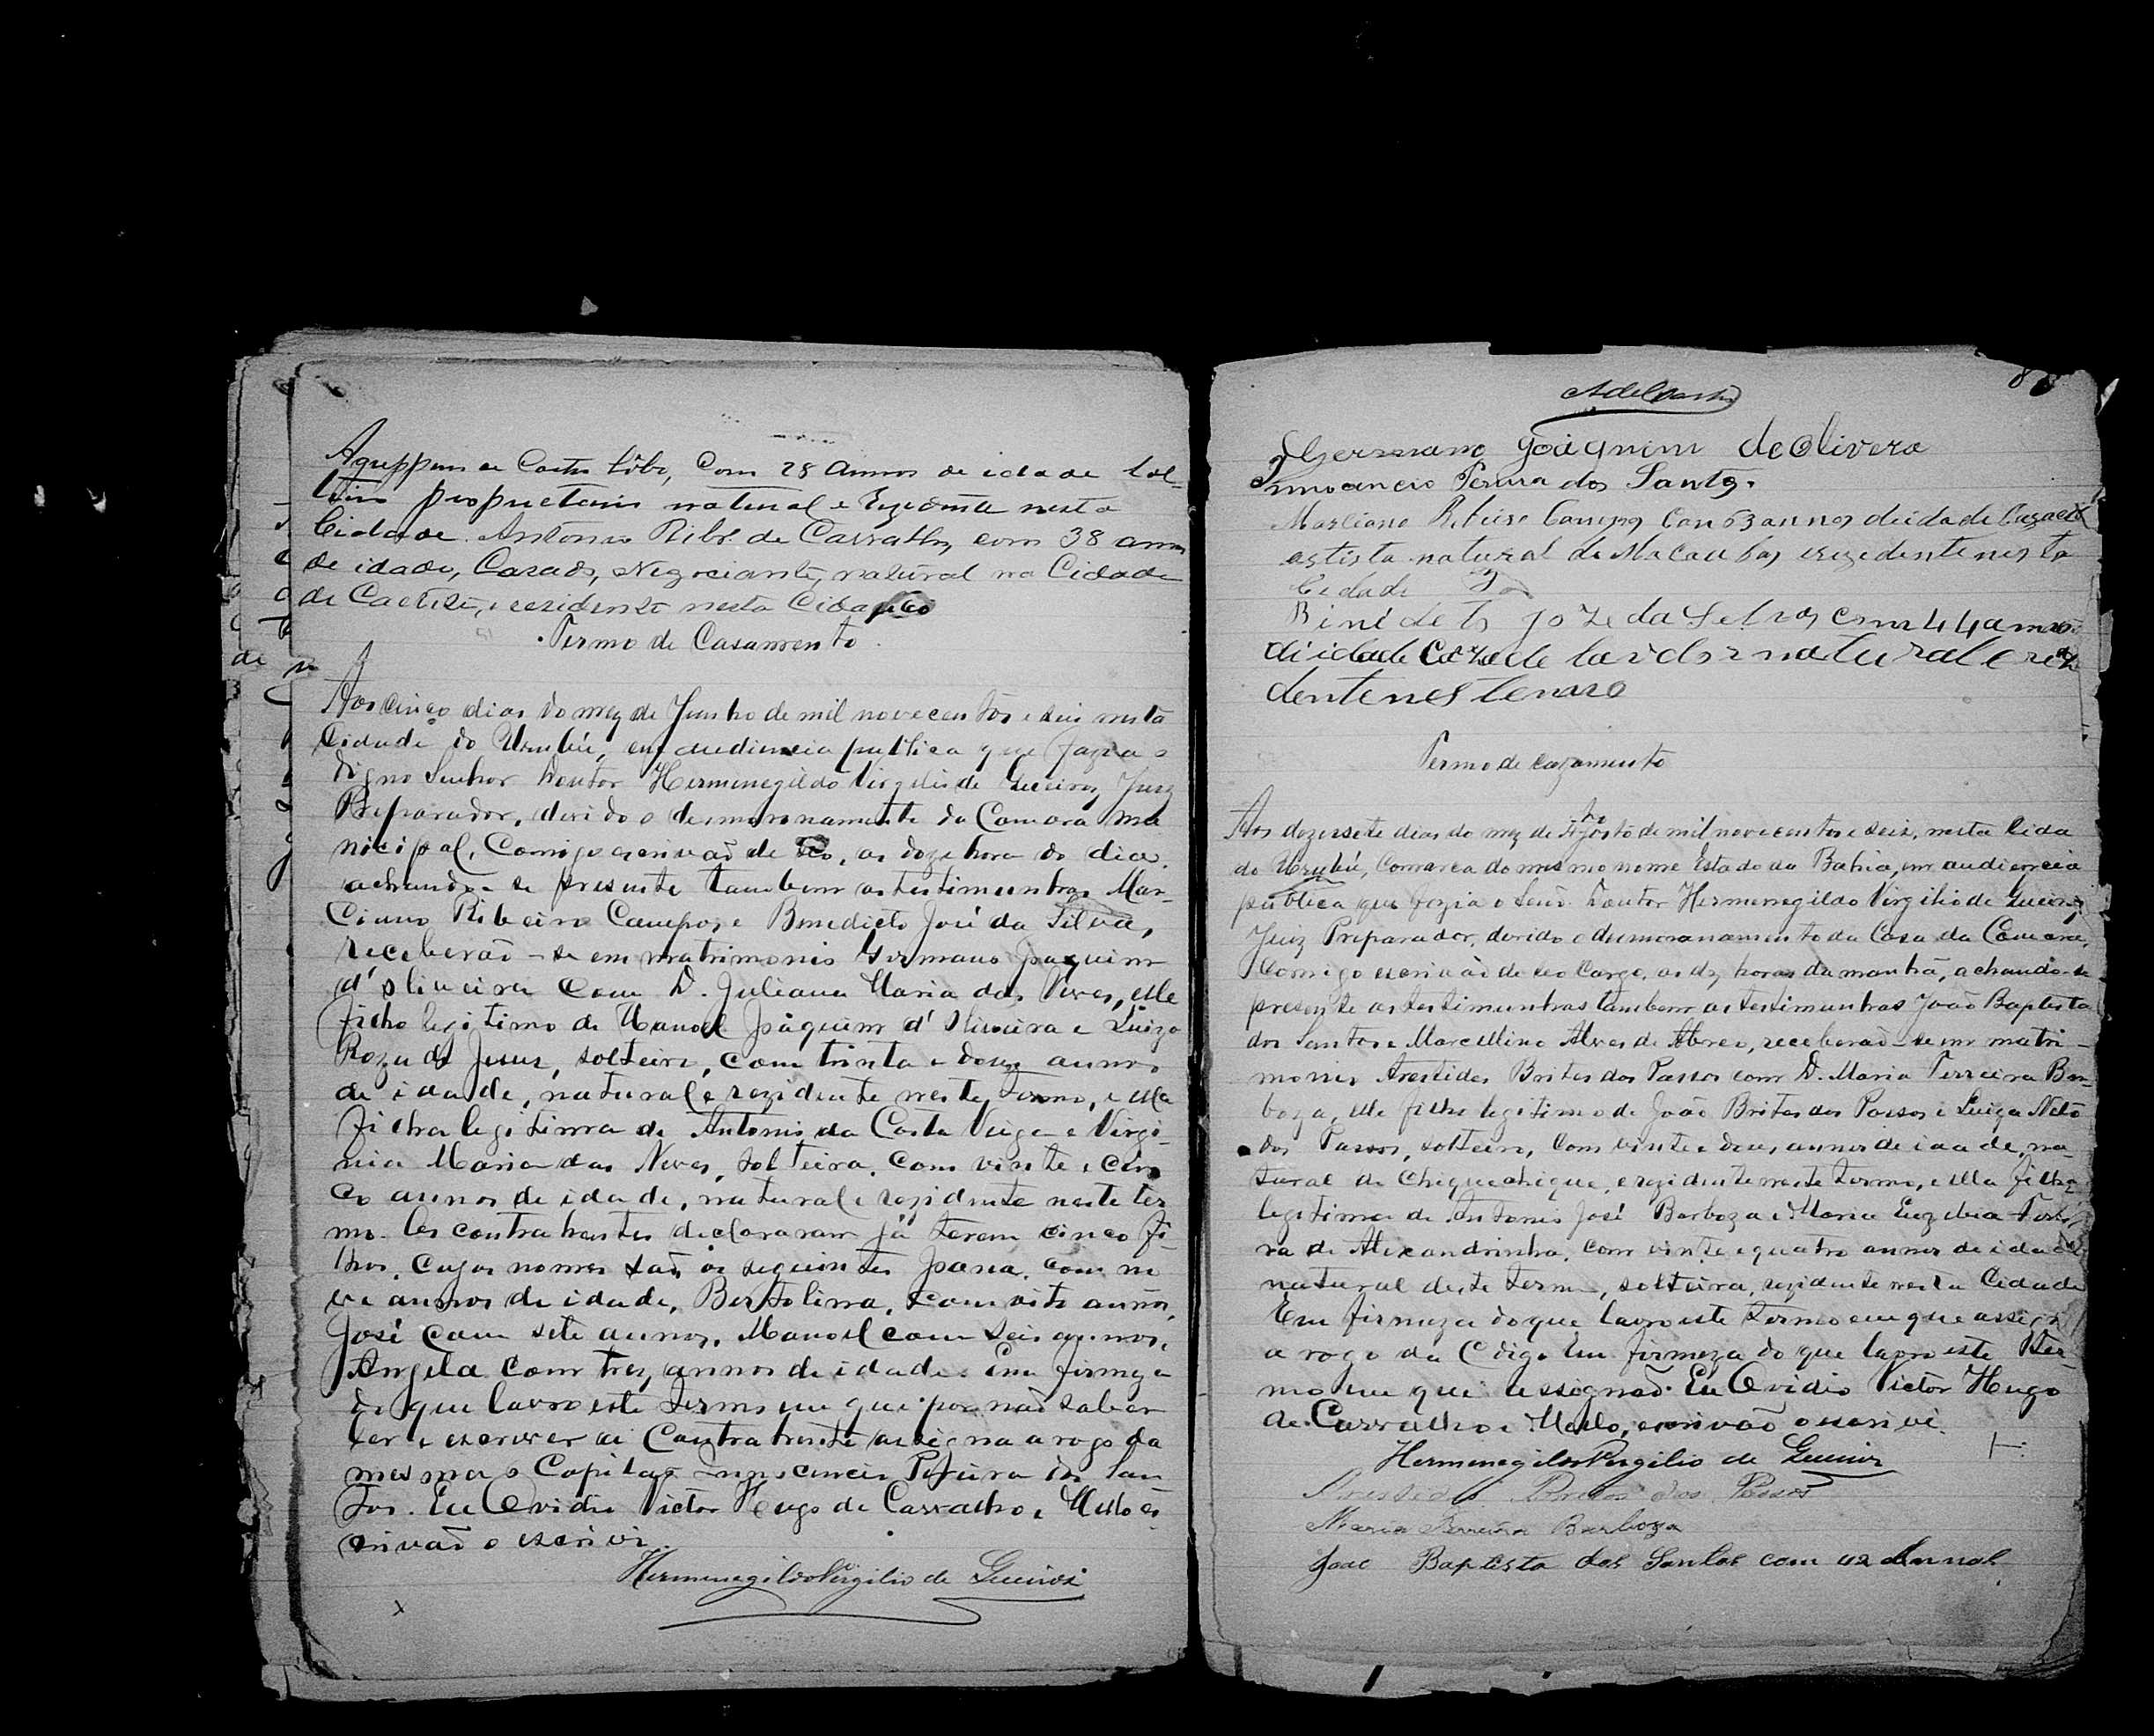 Agrippino de Castro Lôbo, Com 28 Annos de idade sol-
teiro proprietario natural e Rezidente nesta
Cidade. Antonio Ribr. de Carvalho, com 38 annos
de idade, Casado, Negociante, natural na Cidade
de Caeteté, e residente nesta Cidade
Termo de Casamento
Aos cinco dias do mez de Junho de mil novecentos e seis nesta
Cidade do Urubú, em audiencia publica que fazia o
digno Senhor Doutor Hermenegildo Virgilio de Queiroz, Juiz
Preparador, devido o desmoronamento da Camara mu
nicipal, Comigo escrivaõ de seo, as doze hora do dia.
achando-se presente tambem as testimunhas Mar-
Ciano Ribeiro Campos, e Benedicto José da Silva,
receberaõ-se em matrimonio Germano Joaquim
d'Oliveira com D. Juliana Maria das Neves, elle
filho legitimo de Manoel Joaquim d'Oliveira e Luiza
Roza de Jesus, solteiro, com trinta e dous annos
de idade, natural e rezidente neste termo, e ella
filha legitima de Antonio da Costa Veiga e Virgi-
nia Maria das Neves, solteira, com vinte e cin
co annos de idade, natural e rezidente neste ter
mo. Os contrahentes declararam já terem cinco fi-
lhos, cujos nomes saõ os seguintes Joana, com no
ve annos de idade, Bertolina, com oito annos,
José com sete annos, Manoel com seis annos,
Angela com trez annos de idade. Em firmeza
do que lavro este termo em que por naõ saber
ler e escrever a Contrahente assigna a rogo da
mesma o Capitaõ Innocencio Pereira dos San
tos. Eu Ovidio Victor Hugo de Carvalho e Mello es
crivaõ o escrivi.
Hermenegildo Virgilio de Queiroz
X
Germano Joaquim de Olivera
Innocencio Pereira dos Santos.
Marciano Ribeiro Campos Com 63 annos de idade Cazado
artista natural de Macaubas rezedente nesta
Cidade
Binideto Joze da Selva com 44 annos
di idade Cazado lavdor natural e rezi
dente neste
Termo de cazamento
Aos dezessete dias do mez de Agosto de mil novecentos e seis, nesta Cida
de do Urubú, Comarca do mesmo nome Estado da Bahia, em audiencia
publica que fazia o Senr. Doutor Hermenegildo Virgilio de Queiroz,
Juiz Preparador, devido o desmoranamento da Casa da Camara,
Comigo escrivaõ de seo Cargo, as dez horas da manhã, achando-se
presente as testimunhas tambem as testimunhas Joaõ Baptista
dos Santos e Marcellino Alves de Abreo, receberaõ-se em matri-
monio Arestides Britos dos Passos com D. Maria Ferreira Bar-
boza, elle filho legitimo de Joaõ Britos dos Passos e Luiza Neto
dos Passos, solteiro, com vinte e dous annos de idade, na-
tural de Chiquechique, e rezidente neste termo, e ella filha
legitima de Antonio José Barboza e Maria Euzebia
de Alexandrinha, com vinte e quatro annos de idade
natural deste termo, solteira, rezidente nesta Cidade
Em firmeza do que lavro este termo em que assigna
a rogo da Cdigo. Em firmeza do que lavro este ter-
mo em que assignaõ. Eu Ovidio Victor Hugo
de Carvalho e Mello, escrivaõ o escrivi.
Hermenegildo Virgilio de Queiroz
Arestides Britos dos Passos
Maria Ferreira Barboza
Joao Baptista dos Santos com 42 Annos